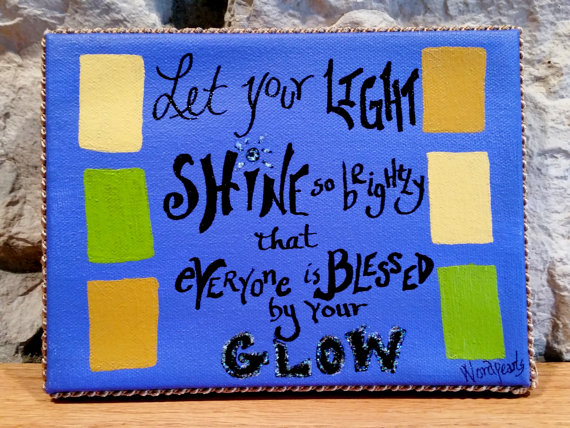 Let your LIGHT
SHINE so brightly
that
eVERYONE is BLESSED
by your
GLOW
Wordpearls